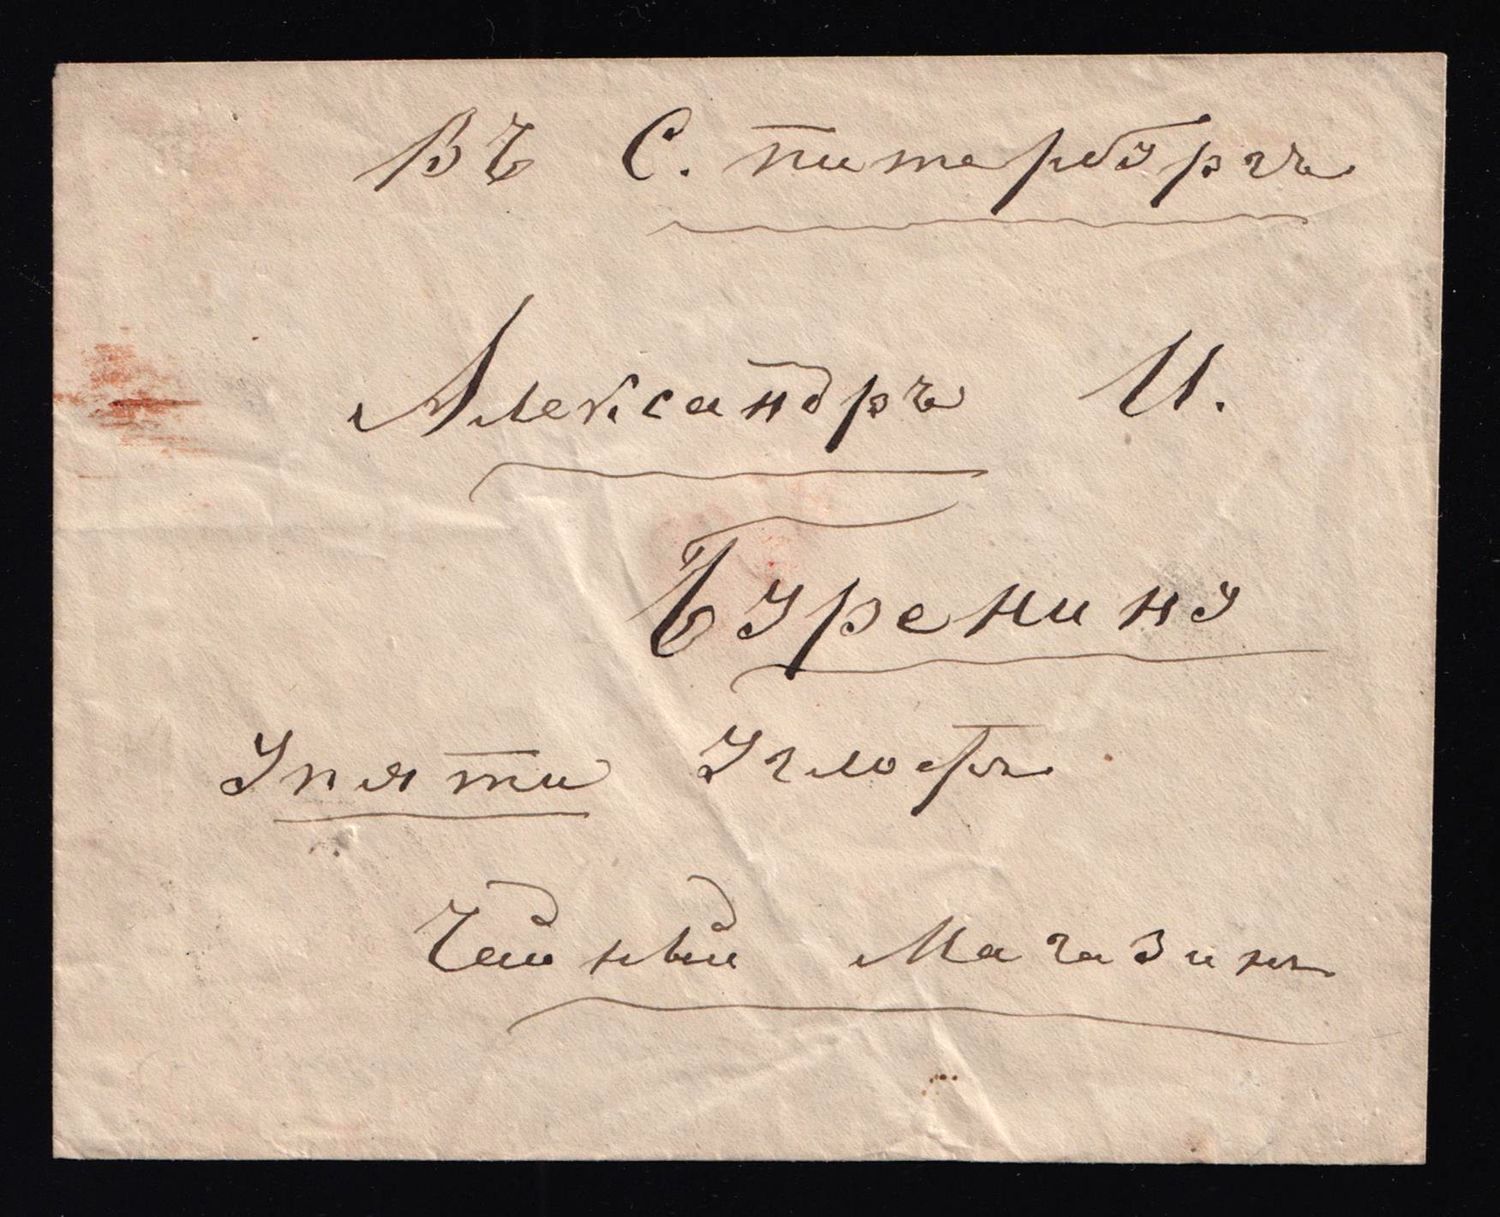 Въ С. питербургъ
Александръ И.
Буренину
У пяти Углофъ
Чейный Магазинъ